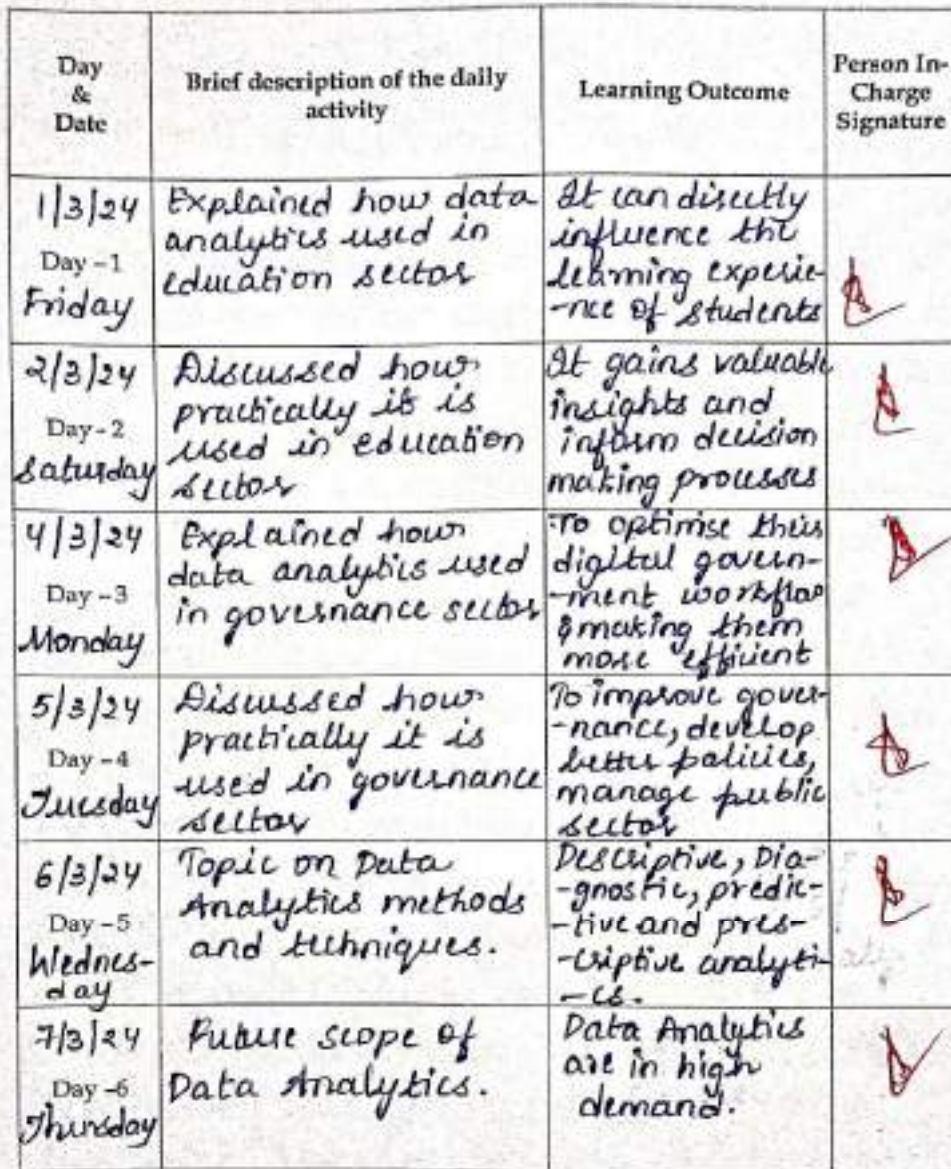 Day
&
Date
Brief description of the daily
activity
Learning Outcome
Person In-
Charge
Signature
1/3/24
Day -1
Friday
Explained how data
analytics used in
education sector
It can directly
influence the
learning experie-
-nce of students
2/3/24
Day -2
Saturday
Discussed how
practically it is
used in education
sector
It gains valuable
insights and
inform decision
making processes
4/3/24
Day -3
Monday
Explained how
data analytics used
in governance sector
To optimise their
digital govern-
-ment workflow
& making them
more efficient
5/3/24
Day -4
Tuesday
Discussed how
practically it is
used in governance
sector
To improve gover-
-nance, develop
better policies,
manage public
sector
6/3/24
Day -5
Wednes-
day
Topic on Data
Analytics methods
and techniques.
Descriptive, Dia-
-gnostic, predic-
-tive and pres-
-criptive analyti-
-cs.
7/3/24
Day -6
Thursday
Future scope of
Data Analytics.
Data Analytics
are in high
demand.